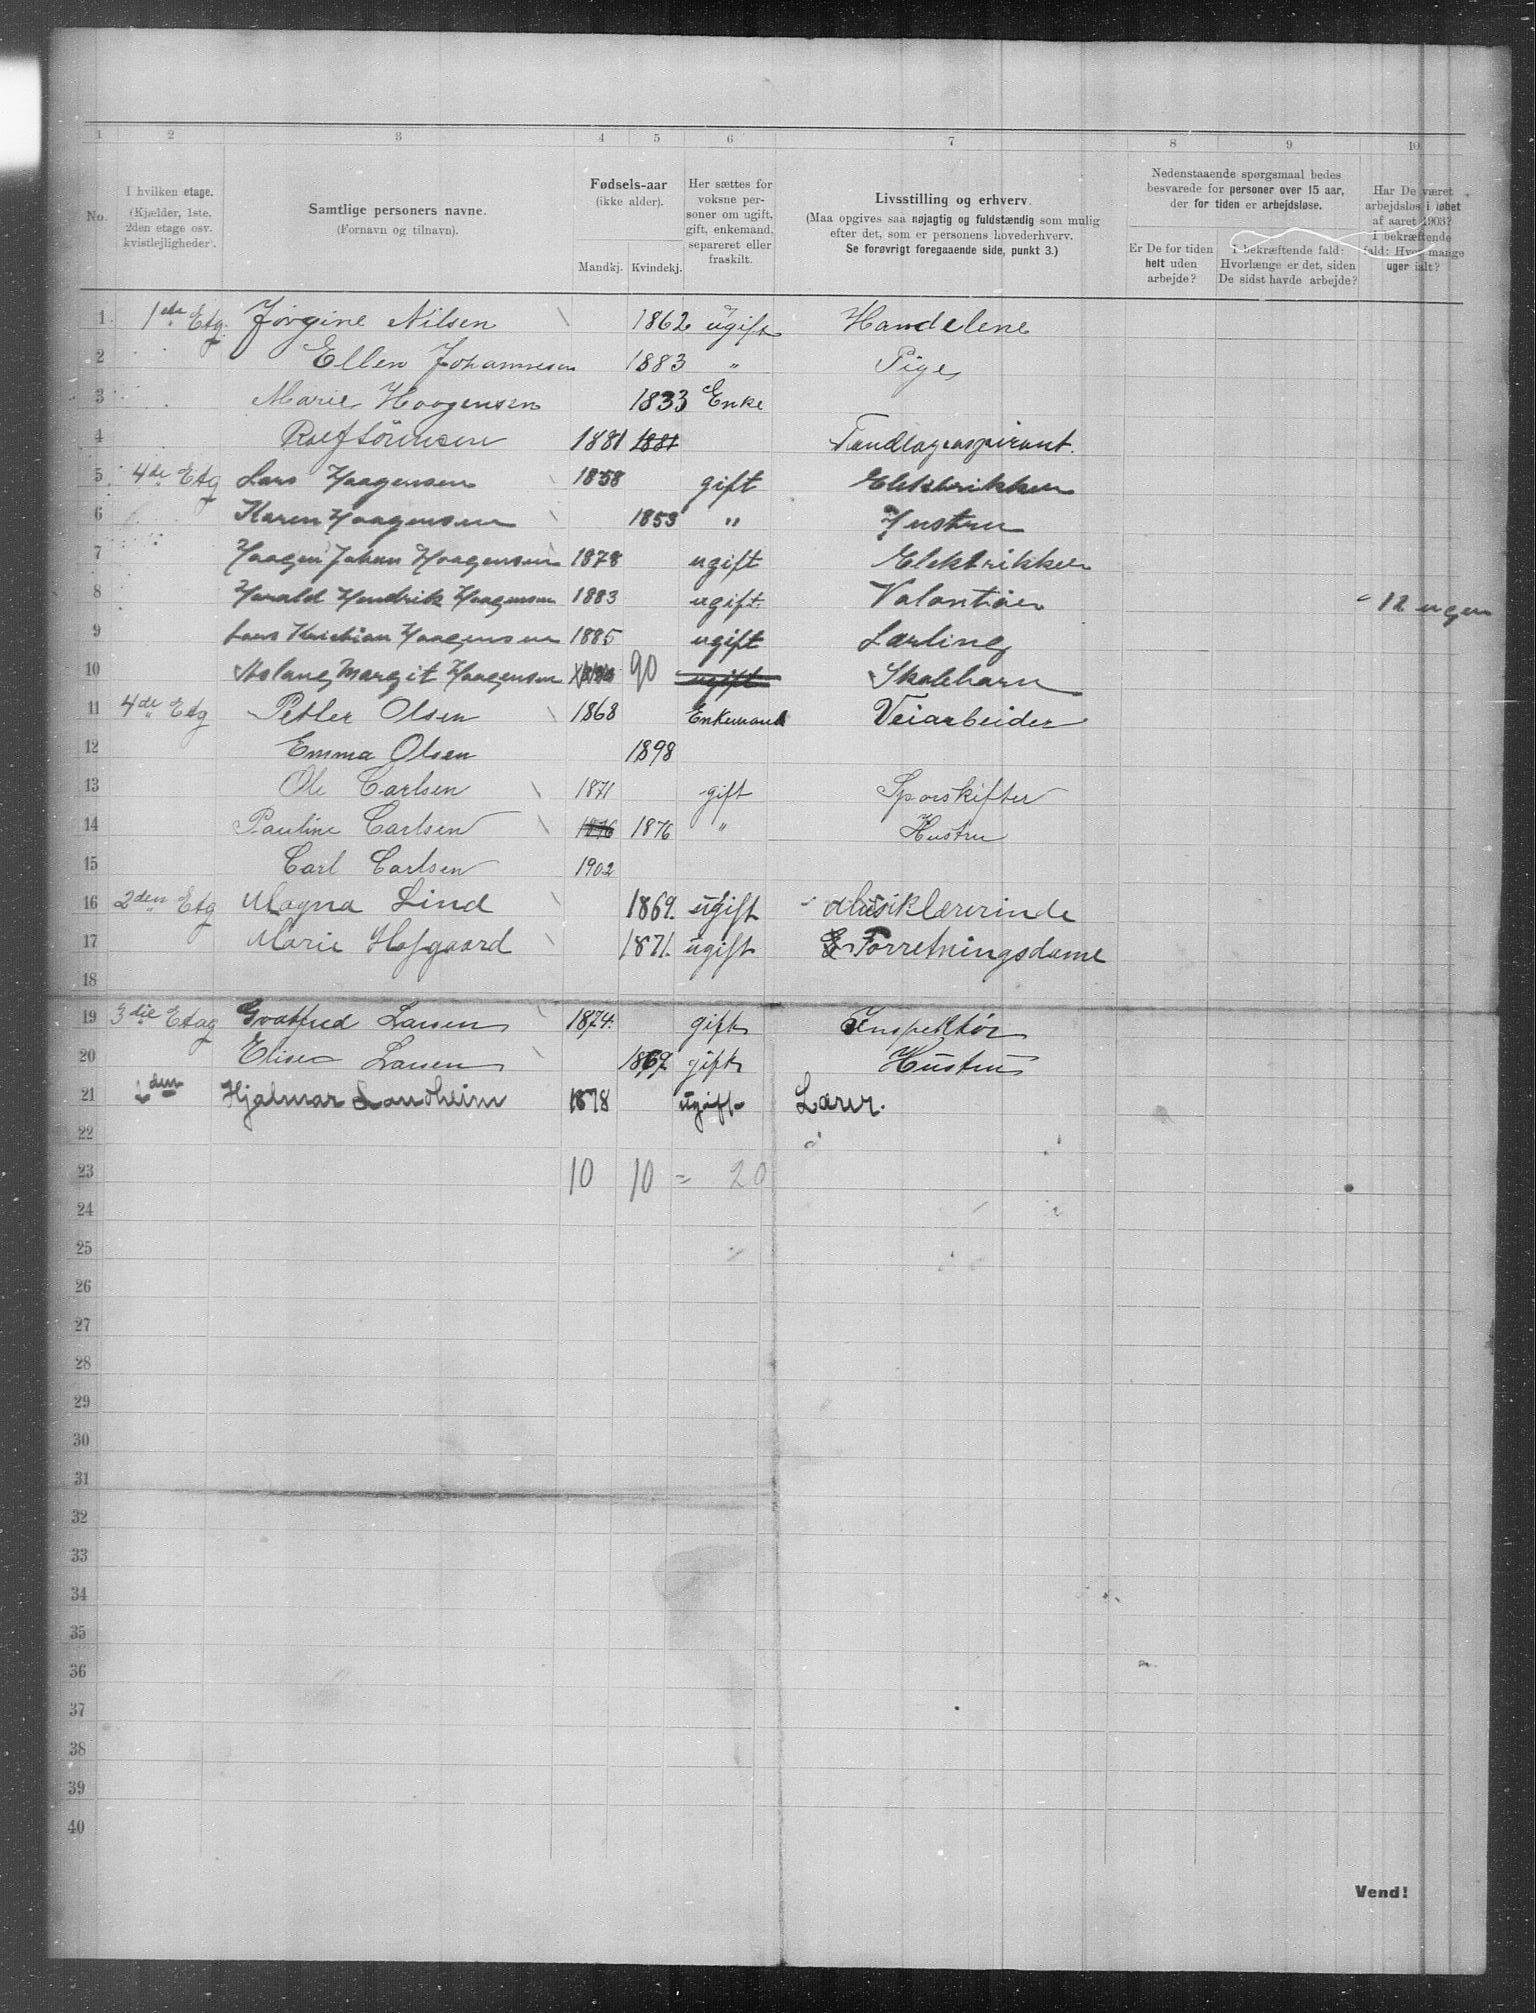 1 2 3 4 5 6 7 8 9 10
No. I hvilken etage. (Kjælder, 1ste, 2den etage osv. kvistlejligheder). Samtlige personers navne. (Fornavn og tilnavn). Fødsels-aar (ikke alder). Mandkj. Kvindekj. Her sættes for voksne personer om ugift, gift, enkemand, separeret eller fraskilt. Livsstilling og erhverv. (Maa opgives saa nøjagtig og fuldstændig som mulig efter det, som er personens hovederhverv. Se forøvrigt foregaaende side, punkt 3.) Nedenstaaende spørgsmaal bedes besvarede for personer over 15 aar, der for tiden er arbejdsløse. Er De for tiden helt uden arbejde? I bekræftende fald: Hvorlænge er det, siden De sidst havde arbejde? Har De været arbejdsløs i løbet af aaret 1903? I bekræftende fald: Hvor mange uger ialt?
1 1ste Etg. Jørgine Nilsen 1862 ugift Handelene
2 Ellen Johannesen 1883 " Pige
3 Marie Haagensen 1833 Enke
4 Rolf Sörensen 1881 1881 Tandlægeaspirant.
5 4de Etg Lars Haagensen 1858 gift Elektrikker
6 Karen Haagensen 1853 " Hustru
7 Haagen Johan Haagensen 1878 ugift Elektrikker
8 Harald Hendrik Haagensen 1883 ugift. Valontiør 12 uger
9 Lars Kristian Haagensen 1885 ugift Lærling
10 Aslaug Margit Haagensen 90 ugift Skolebarn
11 4de Etg Petter Olsen 1868 Enkemand Veiarbeider
12 Emma Olsen 1898
13 Ole Carlsen 1871 gift Sporskifter
14 Pauline Carlsen 1876 1876 " Hustru
15 Carl Carlsen 1902
16 2den Etg Magna Lind 1869. ugift Musiklærerinde
17 Marie Hofgaard 1871. ugift Forretningsdame
18
19 3die Etag Gottfred Larsen 1874. gift Inspektør
20 Elise Larsen 1869 gift Hustru
21 Hjalmar Sandheim 1878 ugift Lærer.
22
23 10 10 = 20
24
25
26
27
28
29
30
31
32
33
34
35
36
37
38
39
40
Vend!